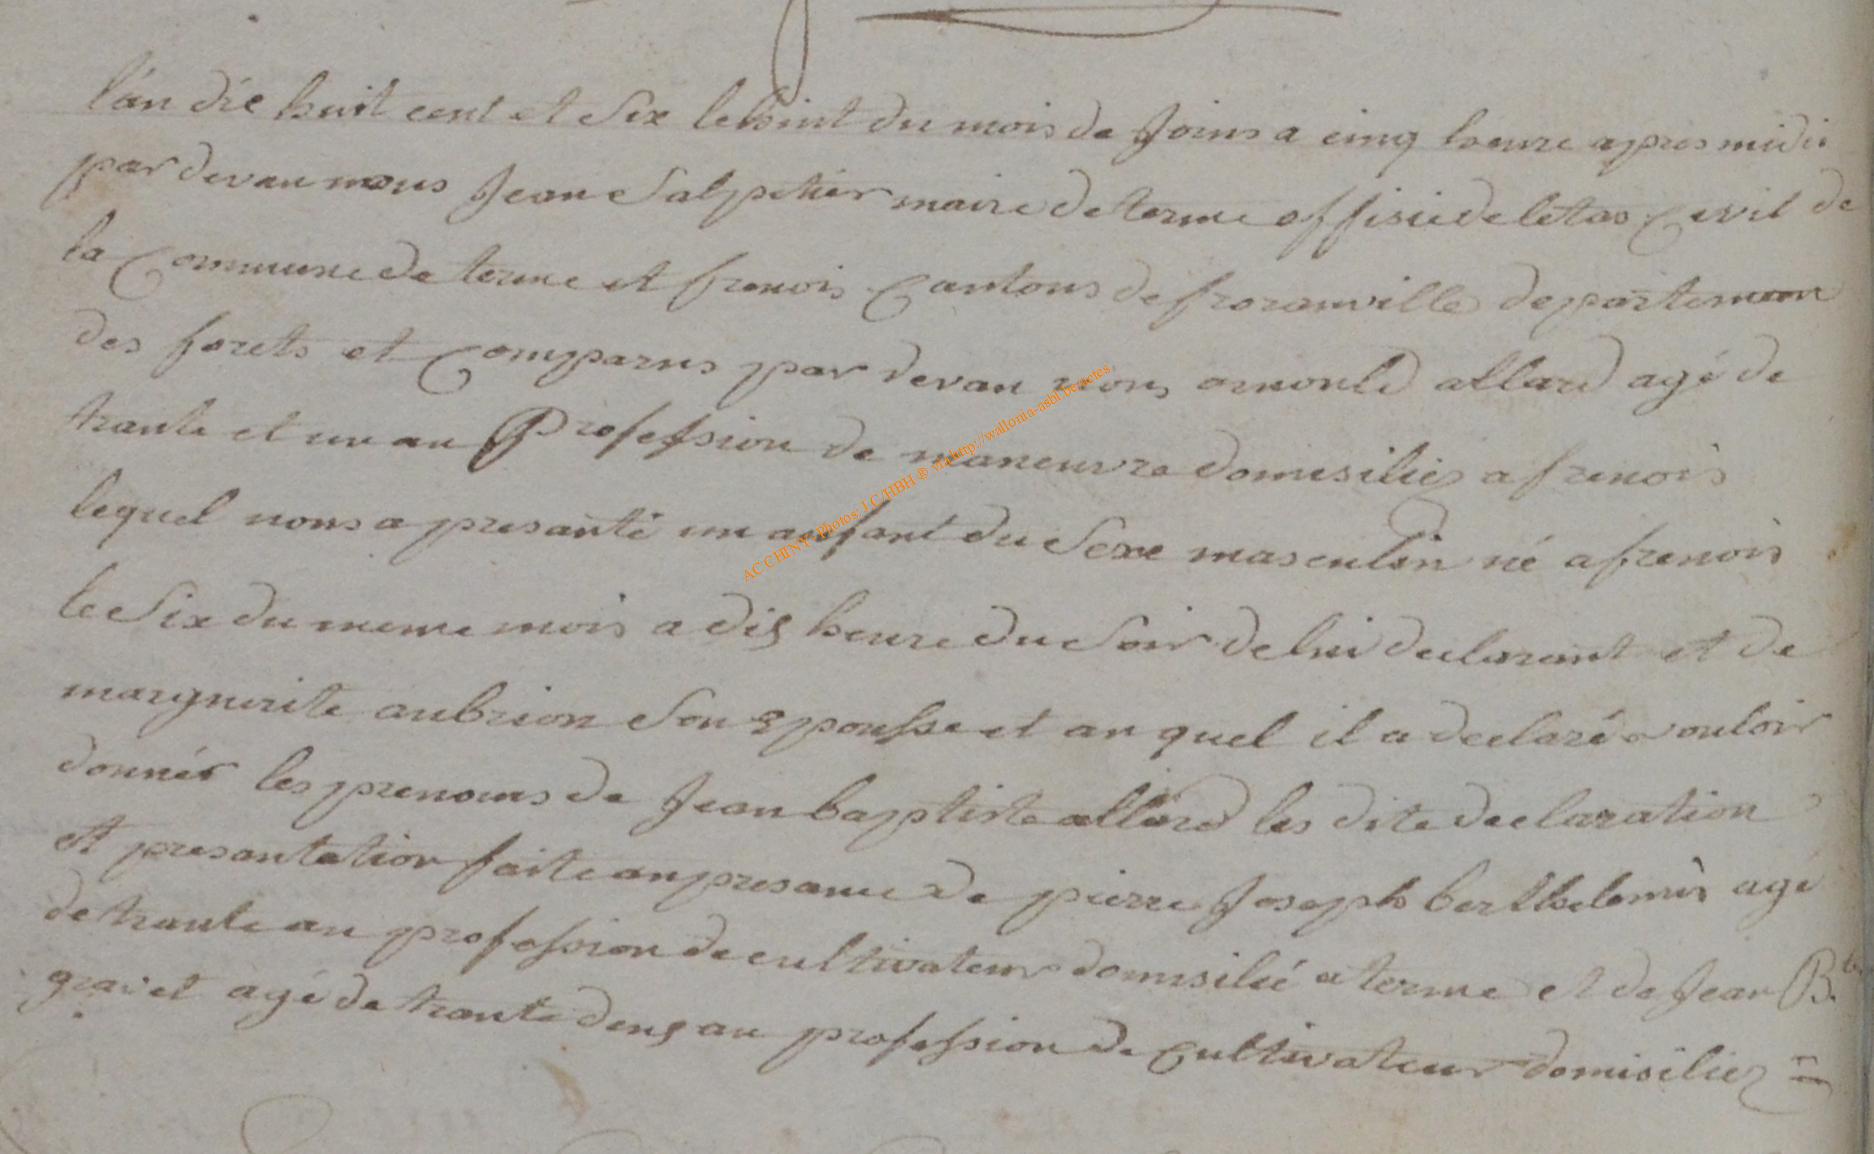 l'an die huit cent et Six le huit du mois de Joins a cinq heure apres midi
par devan nous Jean Salpetier maire de terme offisie de letas Cevil de
la Commune de terme et frenois Cantons de floranville departemen
des forets et Comparus par devan nous arnould allard agé de
trante et un an Profession de maneuvre domisiliez a frenois
lequel nous a presanté un anfant du Sexe masculin né a frenois
le Six du meme mois a dis heure du Soir de lui declarant et de
marguerite aubrion Son epousse et au quel il a declaré vouloir
donnér les prenoms de Jean baptiste allard les dite declaration
et presantation faite an presance de pierre Joseph berthelemis agé
de trante an profession de cultivateur domisilié a terme et de Jean B.te
gravet agé de trante deus an profession de Cultivateur domisiliez =
ACCHINY-Photos: J.C/HBH © via http://wallonia-asbl.be/actes